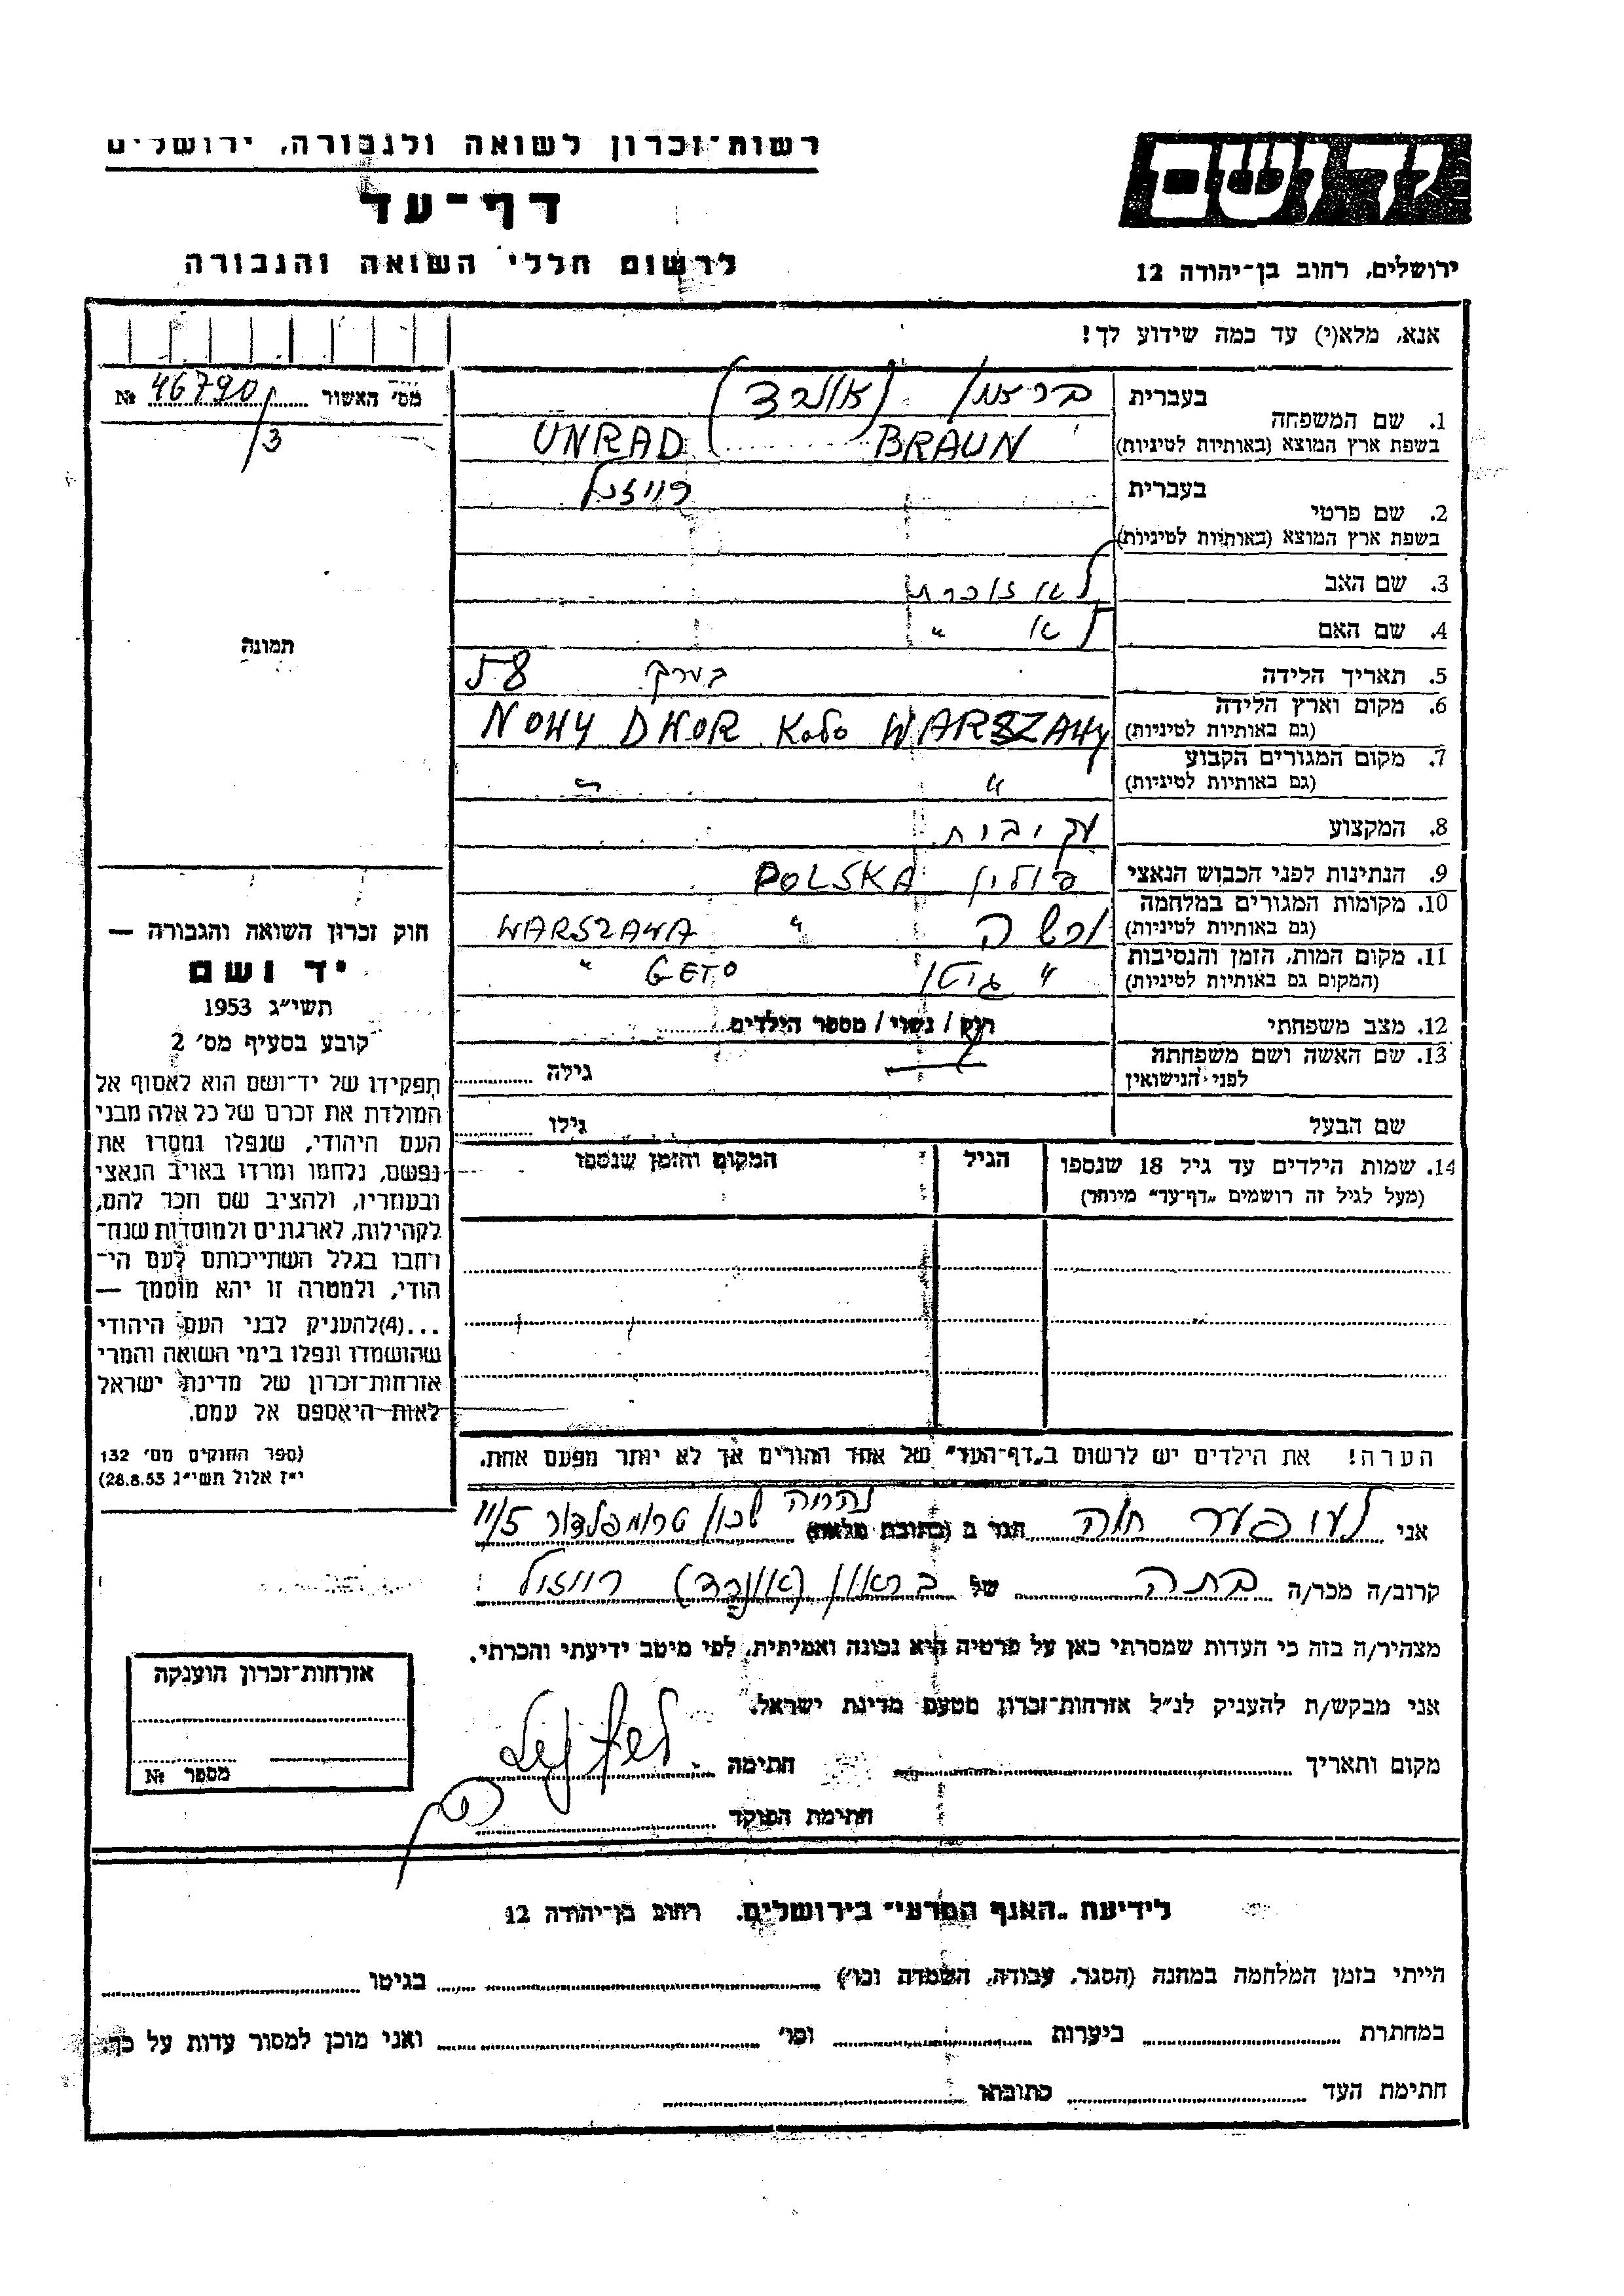 רשות־זכרון לשואה ולגבורה, ירושלים
דף־עד
לרשום חללי השואה והגבורה
יד ושם
ירושלים, רחוב בן־יהודה 12
אנא, מלא(י) עד כמה שידוע לך!
מס׳ האשור № 46790/3
1. שם המשפחה
בעברית בראון (אונרד)
בשפת ארץ המוצא (באותיות לטיניות) BRAUN UNRAD
2. שם פרטי
בעברית רויזל
בשפת ארץ המוצא (באותיות לטיניות)
3. שם האב לא זוכרת
4. שם האם לא "
5. תאריך הלידה בערך 58
6. מקום וארץ הלידה
(גם באותיות לטיניות) NOWY DWOR Koło WARSZAWY
7. מקום המגורים הקבוע
(גם באותיות לטיניות) " "
8. המקצוע
9. הנתינות לפני הכבוש הנאצי פולין POLSKA
10. מקומות המגורים במלחמה
(גם באותיות לטיניות) ורשה " WARSZAWA
11. מקום המות, הזמן והנסיבות
(המקום גם באותיות לטיניות) " גיטו GETO "
12. מצב משפחתי רווק / נשוי / מספר הילדים
13. שם האשה ושם משפחתה
לפני הנישואין גילה
שם הבעל גילו
14. שמות הילדים עד גיל 18 שנספו הגיל המקום והזמן שנספו
(מעל לגיל זה רושמים „דף־עד" מיוחד)
הערה! את הילדים יש לרשום ב„דף־העד" של אחד ההורים אך לא יותר מפעם אחת.
תמונה
חוק זכרון השואה והגבורה —
יד ושם
תשי״ג 1953
קובע בסעיף מס׳ 2
תפקידו של יד־ושם הוא לאסוף אל
המולדת את זכרם של כל אלה מבני
העם היהודי, שנפלו ומסרו את
נפשם, נלחמו ומרדו באויב הנאצי
ובעוזריו, ולהציב שם וזכר להם,
לקהילות, לארגונים ולמוסדות שנח־
רחבו בגלל השתייכותם לעם הי־
הודי, ולמטרה זו יהא מוסמך —
...(4)להעניק לבני העם היהודי
שהושמדו ונפלו בימי השואה והמרי
אזרחות־זכרון של מדינת ישראל
לאות היאספם אל עמם.
(ספר החוקים מס׳ 132
י״ז אלול תשי״ג 28.8.53)
אני חוה הגר ב (כתובת מלאה) שכון טרומפלדור 11/5
קרוב/ה מכר/ה בתה של בראון (אונרד) רויזל
מצהיר/ה בזה כי העדות שמסרתי כאן על פרטיה היא נכונה ואמיתית, לפי מיטב ידיעתי והכרתי.
אני מבקש/ת להעניק לנ״ל אזרחות־זכרון מטעם מדינת ישראל.
מקום ותאריך חתימה
חתימת הפוקד
אזרחות־זכרון הוענקה
מספר №
לידיעת „האגף המדעי" בירושלים, רחוב בן־יהודה 12
הייתי בזמן המלחמה במחנה (הסגר, עבודה, השמדה וכו׳) בגיטו
במחתרת ביערות וכו׳ ואני מוכן למסור עדות על כך.
חתימת העד כתובתו